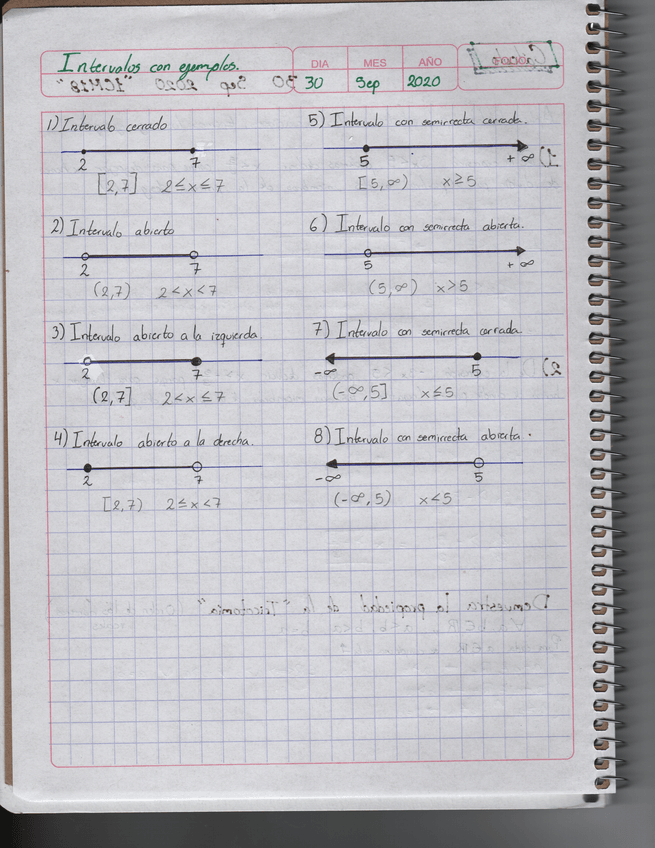 Intervalos con ejemplos.
DIA MES AÑO
30 Sep 2020
1) Intervalo cerrado
2 7
[2,7] 2≤x≤7
2) Intervalo abierto
2 7
(2,7) 2<x<7
3) Intervalo abierto a la izquierda.
2 7
(2,7] 2<x≤7
4) Intervalo abierto a la derecha.
2 7
[2,7) 2≤x<7
5) Intervalo con semirrecta cerrada.
5 +∞
[5,∞) x≥5
6) Intervalo con semirrecta abierta.
5 +∞
(5,∞) x>5
7) Intervalo con semirrecta cerrada
-∞ 5
(-∞,5] x≤5
8) Intervalo con semirrecta abierta.
-∞ 5
(-∞,5) x<5
Demuestra la propiedad de la "Tricotomía"